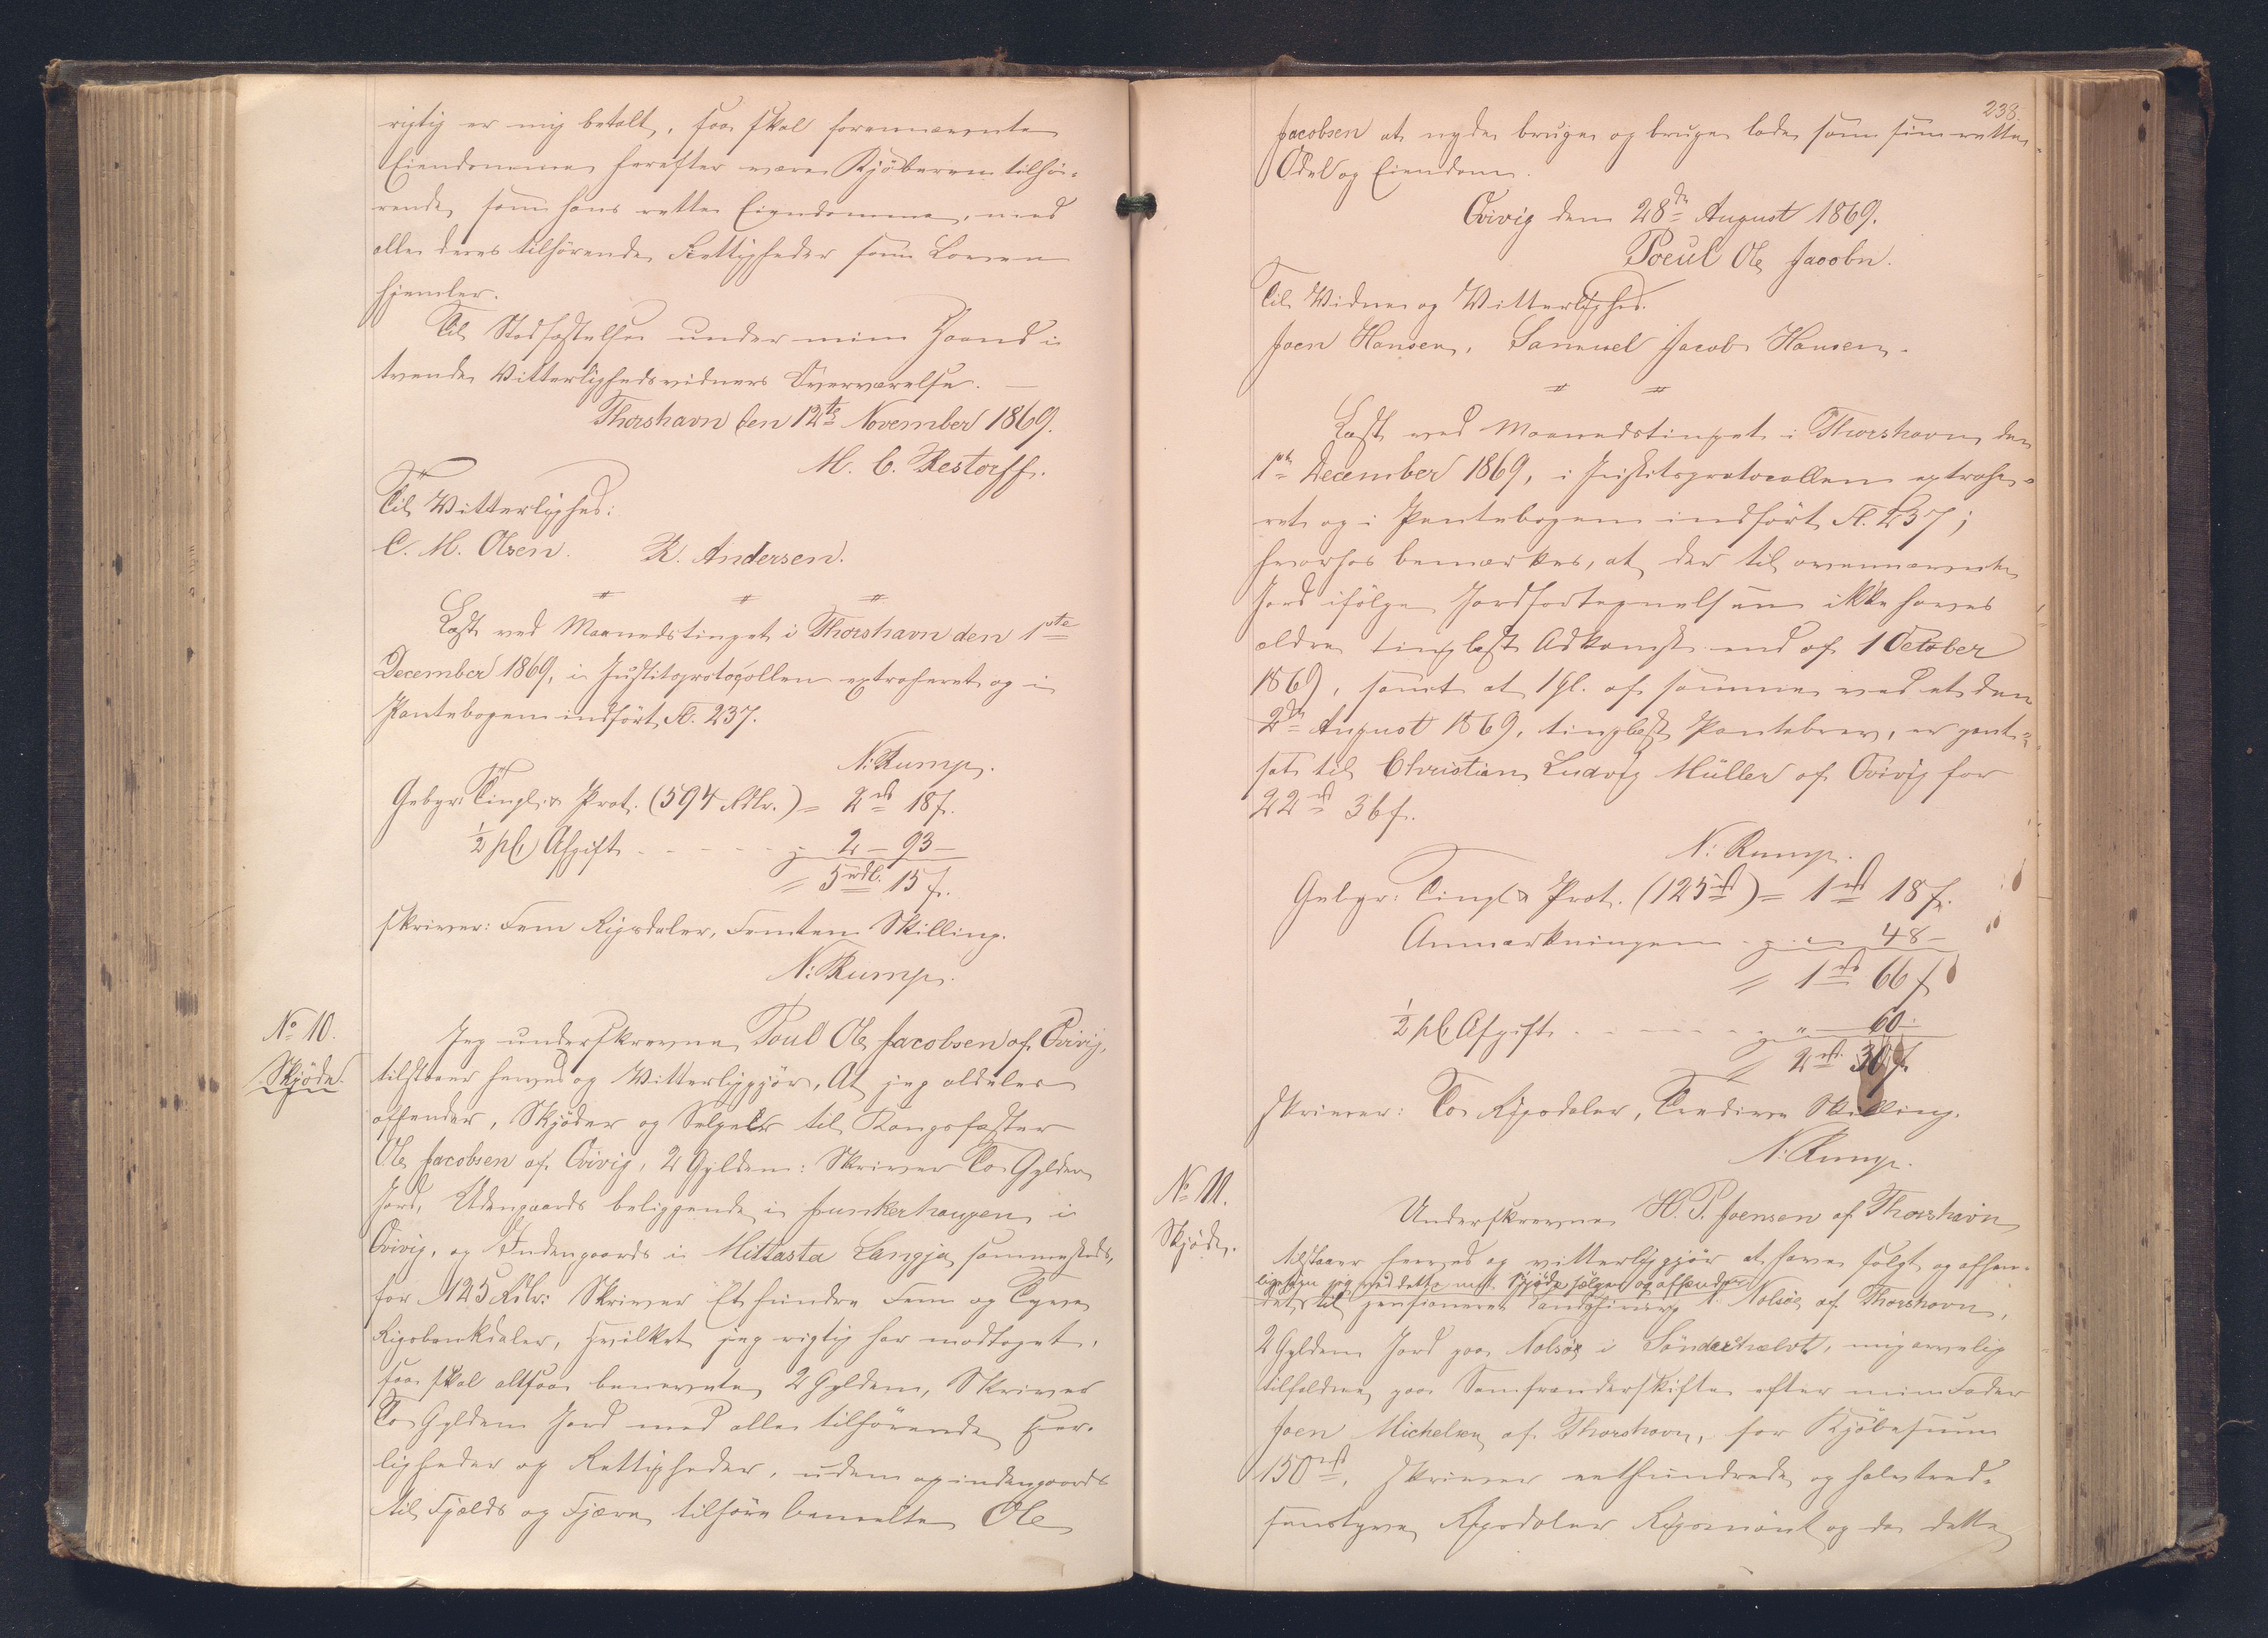 rigtig er mig betalt, saa skal forennævnte
Eiendomme herefter være Kjöberen tilhö-
rende som hans rette Eiendomme, med
alle deres tilhörende Rettigheder som Loven
hjemler.
Til Stadfæstelse under min Haand i
tvende Vitterlighedsvidners Overværelse. —
Thorshavn den 12te November 1869.
M. C. Restorff.
Til Vitterlighed:
C. M. Olsen. K. Andersen.
Læst ved Maanedstinget i Thorshavn den 1ste
December 1869, i Justitsprotocollen extraheret og i
Pantebogen indfört Fl. 237.
N: Rump.
Gebyr: Tingl. & Prot. (594 Rdlr.) = 2 rd 18 s.
½ pCt Afgift - - - - - 2 – 93 –
= 5 rdl. 15 s.
skriver: Fem Rigsdaler, Femten Skilling.
N: Rump.
No 10.
Skjöde.
Jeg underskrevne Poul Ole Jacobsen af Qvivig,
tilstaaer herved og Vitterliggjör, At jeg aldeles
afhender, Skjöder og Selger til Kongsfæster
Ole Jacobsen af Qvivig, 2 Gylden: Skriver To Gylden
Jord, Udengaards beliggende i Junkerhaugen i
Qvivig, og Indengaards i Mittasta Langja sammesteds,
for 125 Rdlr: Skriver Et hundre Fem og Tyve
Rigsbankdaler, hvilket jeg rigtig har modtaget,
saa skal altsaa benevnte 2 Gylden, Skriver
To Gylden Jord med alle tilhörende Her-
ligheder og Rettigheder, uden og indengaards
til Fjelds og Fjære, tilhöre bemeldte Ole
238.
Jacobsen at nyde, bruge og bruge lade som sin rette
Odel og Eiendom.
Qvivig den 28de August 1869.
Poeul Ole Jacobn.
Til Vidne og Vitterlighed.
Joen Hansen, Samuel Jacob Hansen.
Læst ved Maanedstinget i Thorshavn den
1ste December 1869, i Justitsprotocollen extrahe-
ret og i Pantebogen indfört Fl. 237;
hvorhos bemærkes, at der til ovennævnte
Jord ifölge Jordfortegnelsen ikke haves
ældre tinglæst Adkomst end af 1 October
1869, samt at 1 Gl. af samme ved et den
2den August 1869, tinglæst Pantebrev, er pant-
sat til Christian Ludvig Müller af Qvivig for
22 rd 36 s.
N: Rump.
Gebyr: Tingl & Prot. (125 rd) = 1 rd 18 s.
Anmærkningen - - 48 –
= 1 rd 66 s
½ pCt Afgift. - - - - " 60 –
= 2 rd. 30 s.
skriver: To Rigsdaler, Tredive Skilling.
N: Rump.
No 11.
Skjöde.
Underskrevne H. P. Joensen af Thorshavn
tilstaaer herved og vitterliggjör at have solgt og afhen-
ligesom jeg ved dette mit Skjöde sælger og afhænder
det til pensioneret Landchirurg N. Nolsöe af Thorshavn,
2 Gylden Jord paa Nolsöe i Sönderhælvt, mig arvelig
tilfalden paa Samfrænderskifte efter min Fader
Joen Michelsen af Thorshavn, for Kjöbesum
150 rd, skriver eethundrede og halvtred-
sindstyve Rigsdaler Rigsmönt og da dette